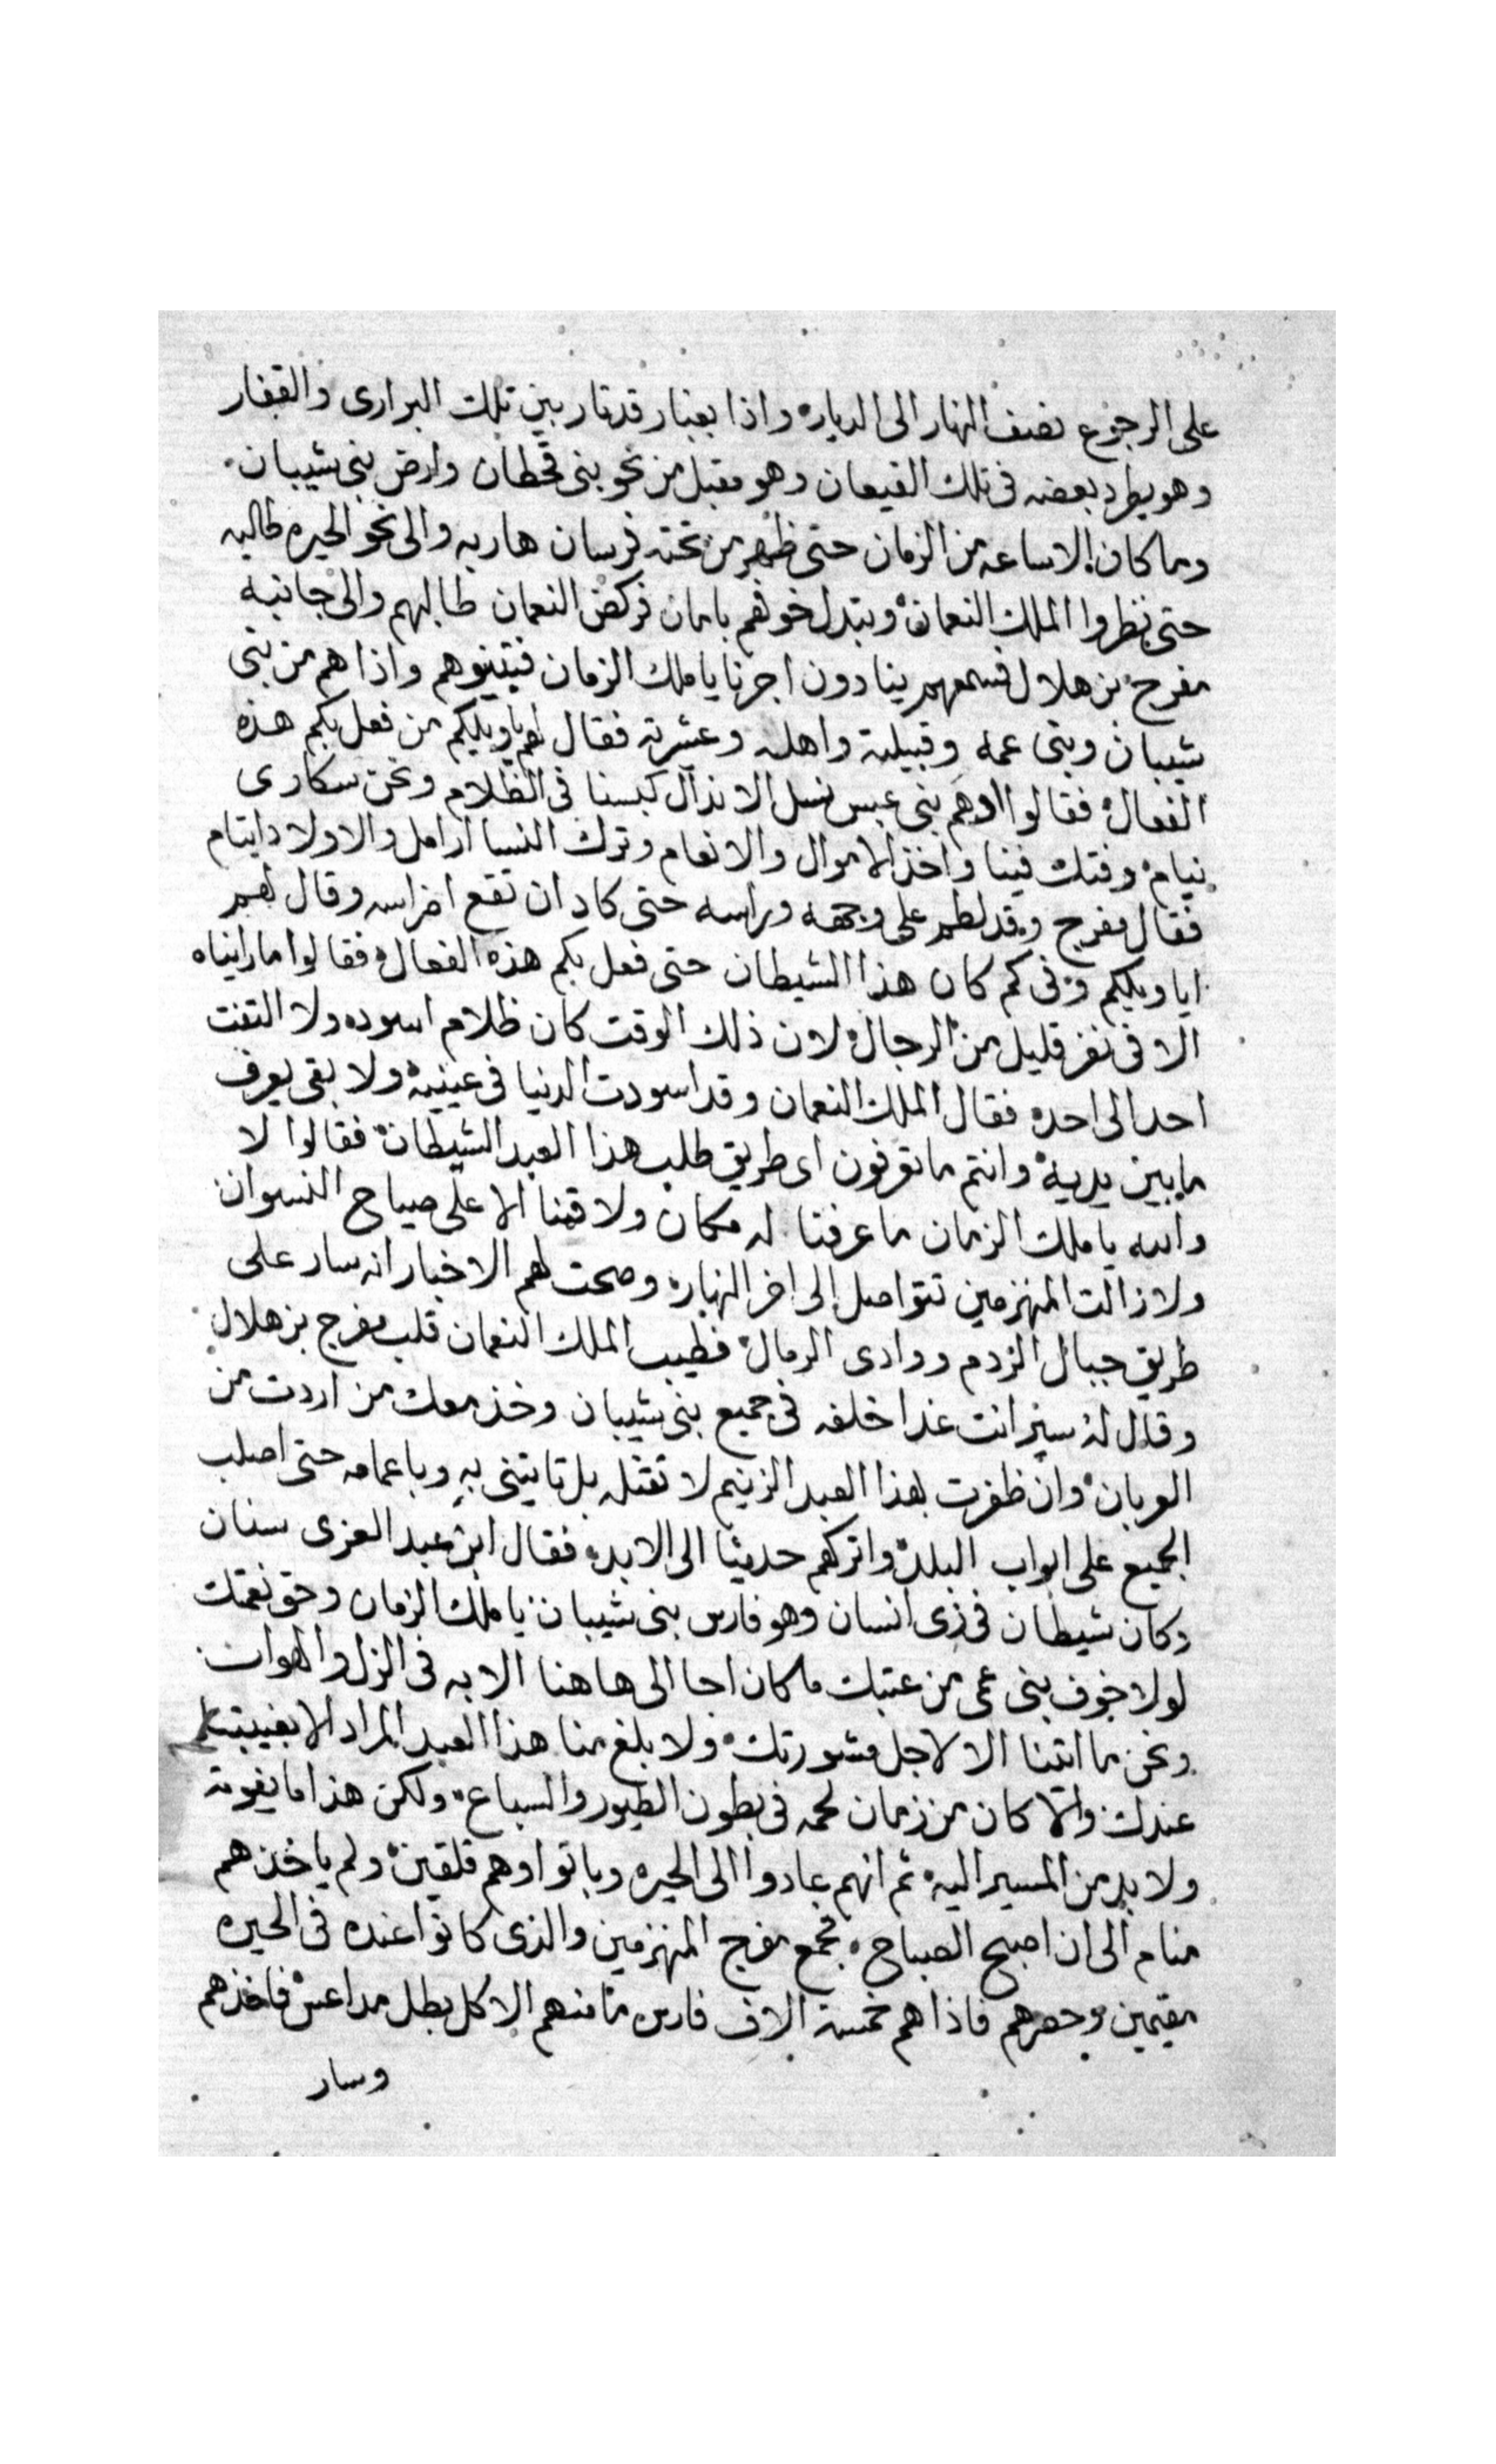 على الرجوع نصف النهار الى الديار، واذا بغبار قد ثار بين تلك البرارى والقفار
وهو يطرد بعضه فى تلك القيعان وهو مقبل من نحو بنى قحطان وارض بنى شيبان،
وما كان الا ساعه من الزمان حتى ظهر من تحته فرسان هاربه والى نحو الحيره طالبه
حتى نظروا الملك النعمان، وتبدل خوفهم بامان فركض النعمان طالبهم والى جانبه
مفرج بن هلال فسمعهم ينادون اجرنا يا ملك الزمان فتبينوهم واذا هم من بنى
شيبان وبنى عمه وقبيلته واهله وعشرته فقال لهم يا ويلكم من فعل بكم هذه
الفعال، فقالوا ادهم بنى عبس نسل الانذال كبسنا فى الظلام ونحن سكارى
نيام، وفتك فينا واخذ الاموال والانعام وترك النسا ارامل والاولاد ايتام
فقال مفرج وقد لطم على وجهه وراسه حتى كاد ان تقع اضراسه وقال لهم
ايا ويلكم وفى كم كان هذا الشيطان حتى فعل بكم هذه الفعال، فقالوا ما رايناه
الا فى نفر قليل من الرجال، لان ذلك الوقت كان ظلام اسود، ولا التفت
احد الى احد، فقال الملك النعمان وقد اسودت الدنيا فى عينيه، ولا بقى يعرف
ما بين يديه، وانتم ما تعرفون اى طريق طلب هذا العبد الشيطان، فقالوا لا
والله يا ملك الزمان ما عرفنا له مكان ولا قمنا الا على صياح النسوان
ولا زالت المنهزمين تتواصل الى اخر النهار، وصحت لهم الاخبار انه سار على
طريق جبال الردم ووادى الرمال، فطيب الملك النعمان قلب مفرج بن هلال
وقال له سير انت غدا خلفه فى جميع بنى شيبان وخذ معك من اردت من
العربان، وان ظفرت بهذا العبد الزنيم لا تقتله بل تايتنى به وباعمامه حتى اصلب
الجميع على ابواب البلد، واتركهم حديثا الى الابد، فقال ابن عبد العزى سنان
وكان شيطان فى زى انسان وهو فارس بنى شيبان، يا ملك الزمان وحق نعمتك
لولا خوف بنى عمى من عتبك ما كان احا الى هاهنا الا به فى الذل والهوان
ونحن ما اتينا الا لاجل مشورتك، ولا بلغ منا هذا العبد المراد الا بغيبتنا
عندك والا كان من زمان لحمه فى بطون الطيور والسباع، ولكن هذا ما يفوته
ولا بد من المسير اليه، ثم انهم عادوا الى الحيره وباتوا وهم قلقين، ولم ياخذهم
منام الى ان اصبح الصباح، فجمع مفرج المنهزمين والذى كانوا عنده فى الحيره
مقيمين وحصرهم فاذا هم خمسة الاف فارس ما منهم الا كل بطل مداعس فاخذهم
وسار